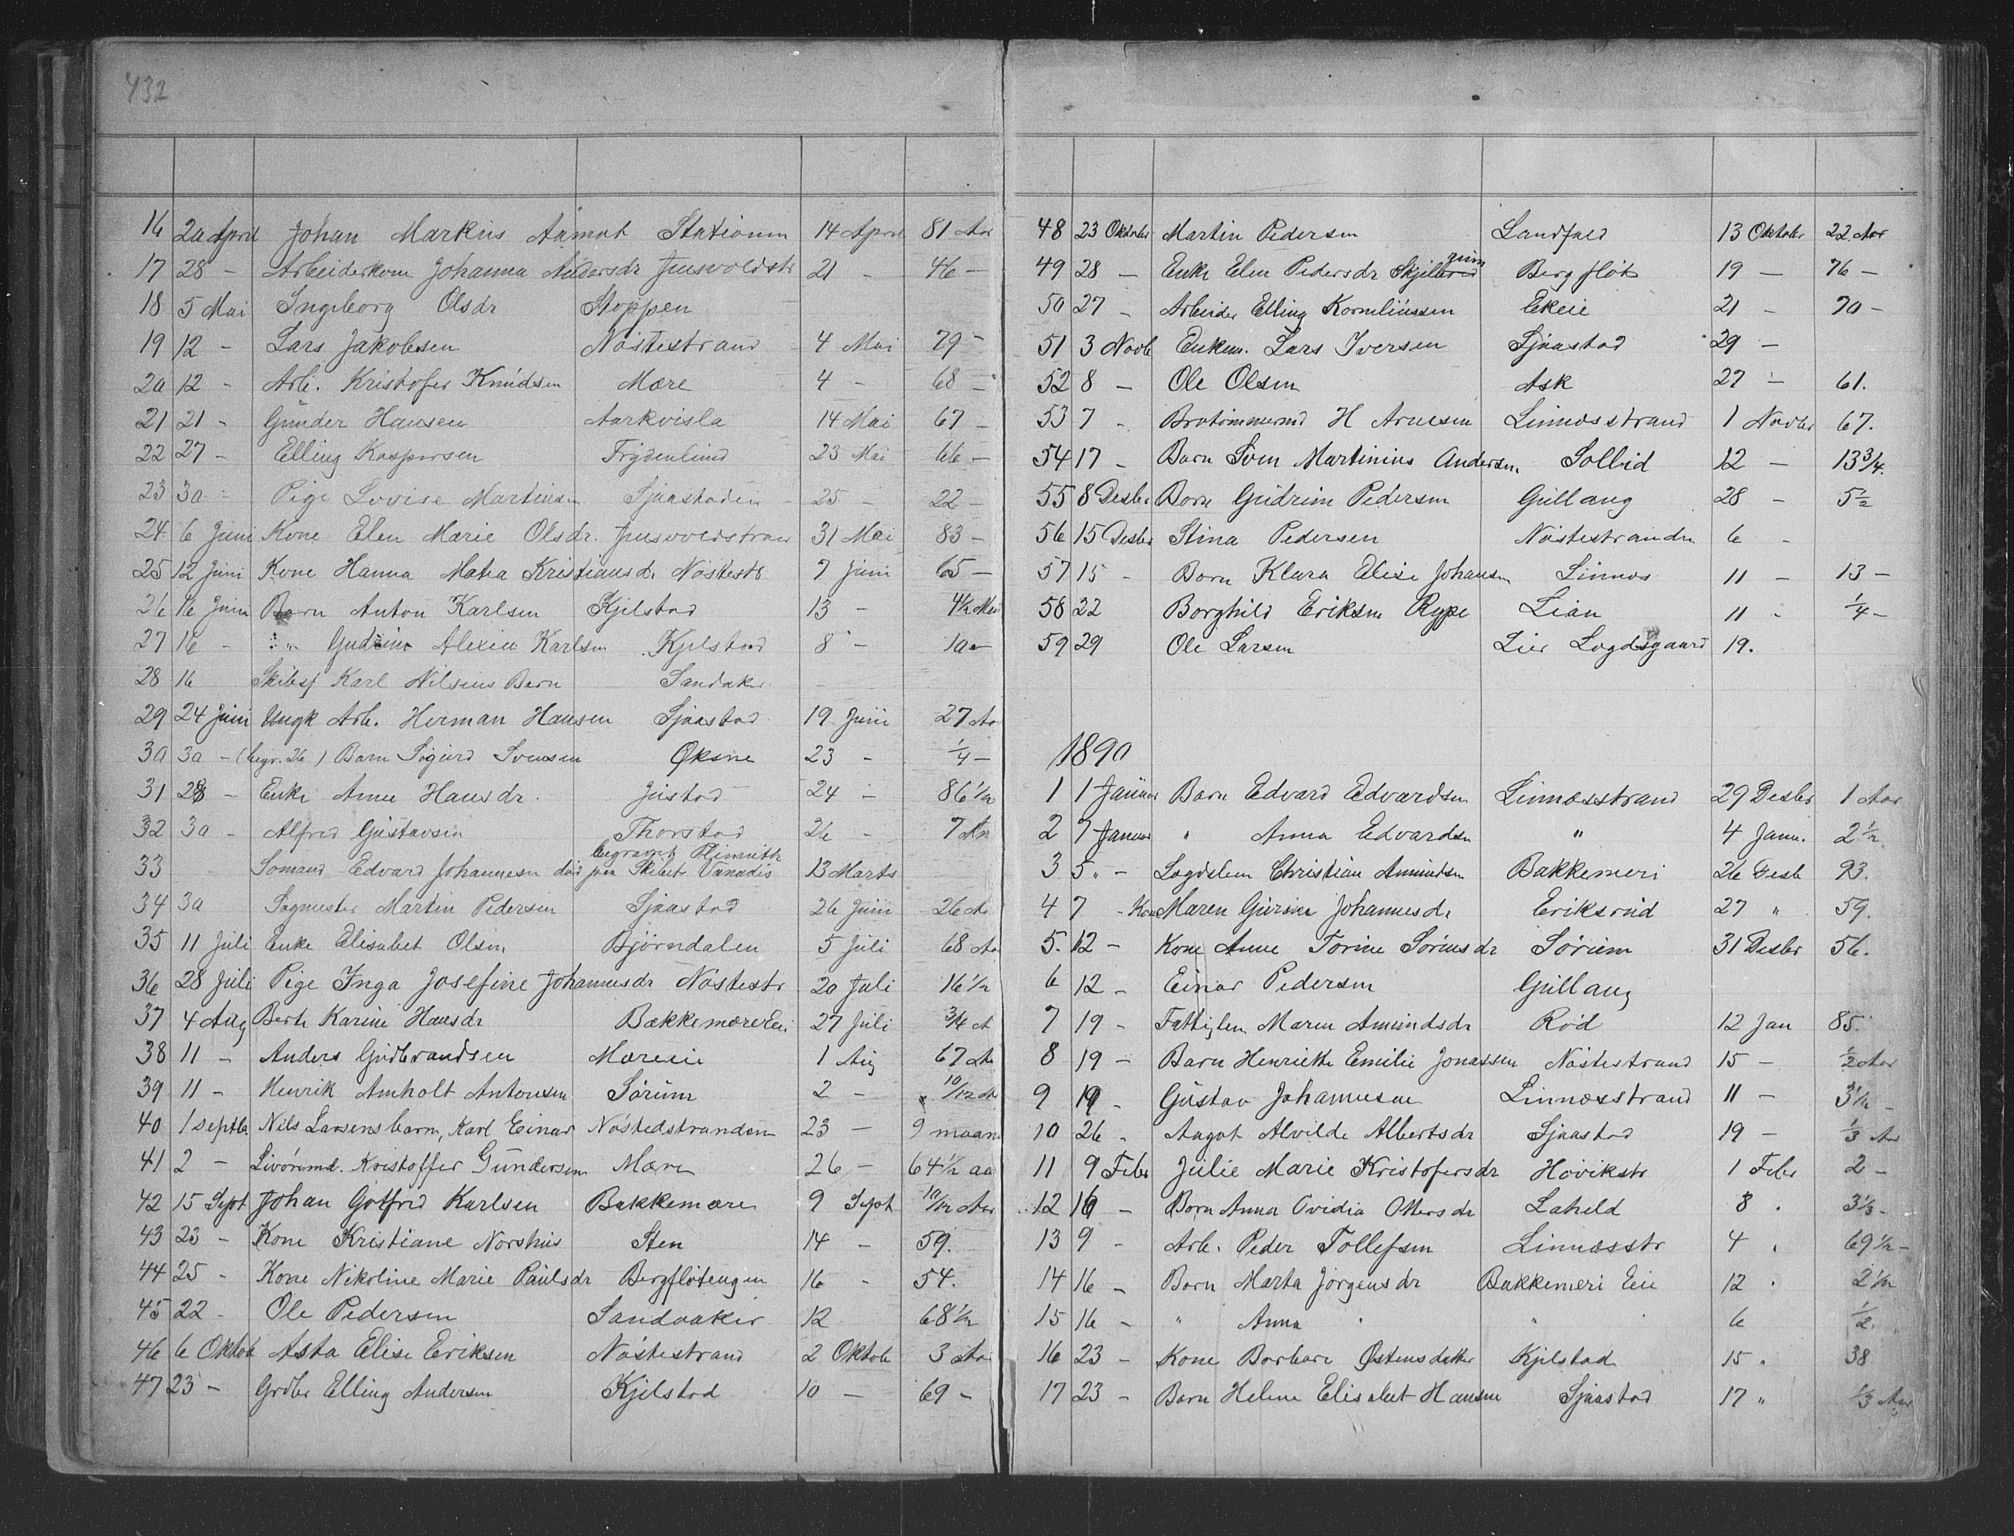 432
16 20 April Johan Markus Aamot Stationen 14 April 81 Aar
17 28 - Arbeiderkone Johanna Andersdr Jensvoldstr 21 - 46 -
18 5 Mai Ingeborg Olsdr Stoppen
19 12 - Lars Jakobsen Nöstestrand 4 Mai 79 -
20 12 - Arb. Kristofer Knudsen Mære 4 - 68 -
21 21 - Gunder Hansen Aarkvisla 14 Mai 67 -
22 27 - Elling Kaspersen Frydenlund 23 Mai 66 -
23 30 - Pige Lovise Martinsen Sjaastaden 25 - 22 -
24 6 Juni Kone Elen Marie Olsdr. Jensvoldstrand 31 Mai 83 -
25 12 Juni Kone Hanna Mathea Kristiansdr Nöstestr 7 Juni 65 -
26 16 Juni Barn Anton Karlsen Kjilstad 13 - 4½ Md
27 16 - " Gudrun Alexia Karlsen Kjelstad 8 - 10 -
28 16 Skibsf Karl Nilsens Barn Sandaker
29 24 Juni Ungk Arb. Herman Hansen Sjaastad 19 Juni 27 Aa
30 30 - (begr. 26) Barn Sigurd Svensen Øksne 23 - ¼ -
31 28 - Enke Anne Hansdr. Justad 24 - 86½
32 30 - Alfred Gustavsen Thorstad 26 - 7 Aar
33 Sömand Edvard Johannesen död paa Skibet Vanadis 13 Marts
34 30 Sagmester Martin Pedersen Sjaastad 26 Juni 26 Aa
35 11 Juli Enke Elisabet Olsen Björndalen 5 Juli 68 Aa
36 28 Juli Pige Inga Josefine Johannesdr Nöstestr 20 Juli 16½
37 4 Aug Berthe Karine Hansdr Bakkemære Eie 27 Juli ¾ A
38 11 - Anders Gudbrandsen Mæreeie 1 Aug 67 Aa
39 11 - Henrik Amholt Antonsen Sörum 2 - 10/12 Aa
40 1 septb. Nils Larsens barn, Karl Einar Nöstedstranden 23 - 9 maan
41 2 - Livöremd. Kristoffer Gundersen Mære 26 - 64½ aa
42 15 Sept Johan Gotfred Karlsen Bakkemære 9 Sept 10/12 Aar
43 23 - Kone Kristiane Norshus Sten 14 - 59.
44 25 - Kone Nikoline Marie Paulsdr Bergflötengen 16 - 54.
45 22 - Ole Pedersen Sandaaker 12 68½
46 6 Oktob Asta Elise Eriksen Nöstestrand 2 Oktob 3 Aar
47 23 - Grdbr Elling Andersen Kjilstad 10 - 69 -
48 23 Oktober Martin Pedersen Landfald 13 Oktober 22 Aar
49 28 - Enke Elen Pedersdr Bergflöt 19 - 76 -
50 27 - Arbeider Elling Korneliussen Ekeie 21 - 70 -
51 3 Novb Enkem. Lars Iversen Sjaastad 29 -
52 8 - Ole Olsen Ask 27 - 61.
53 7 - H Arnesen Linnæsstrand 1 Novbr 67.
54 17 - Barn Sven Martinius Andersen Solbid 12 - 13¾.
55 8 Desbr Barn Gudrun Pedersen Gullaug 28 - 5½
56 15 Desbr Stina Pedersen Nöstestranden 6 -
57 15 - Barn Klara Elise Johansen Linnæs 11 - 13 -
58 22 Borghild Eriksen Rype Lian 11 - ¼ -
59 29 Ole Larsen Lier Lægdsgaard 19.
1890
1 1 Januar Barn Edvard Edvardsen Linnæsstrand 29 Desbr 1 Aar
2 7 Januar " Anna Edvardsen " 4 Janu. 2½.
3 5 " - Lægdslem Christian Amundsen Bakkemeri 26 Desb 93.
4 7 - Kone Maren Gurine Johannesdr Eriksrud 27 " 59.
5. 12 - Kone Anne Torine Sörensdr Sörum 31 Desbr 56.
6 12 - Einar Pedersen Gullaug
7 19 - Fattiglem Maren Amundsdr Röd 12 Jan 85.
8 19 - Barn Henriette Emilie Jonassen Nöstestrand 15 - ½ Aar
9 19 - Gustav Johannesen Linnæsstrand 11 - 3½ -
10 26 - Aagot Alvilde Albertsdr Sjaastad 19 - ⅓ Aa
11 9 Febr Julie Marie Kristofersdr Hövikstr 1 Febr 2 -
12 16 - Barn Anna Ovidia Ottersdr Laheld 8 . 3⅓ -
13 9 - Arb. Peder Tollefsen Linnæsstr 4 . 69½ -
14 16 - Barn Marta Jörgensdr Bakkemeri Eie 12 . 2½
15 16 - " Anna " " 6 ½.
16 23 - Kone Barbara Østensdatter Kjelstad 15 " 38
17 23 - Barn Helene Elisabet Hansen Sjaastad 17 " ⅓ Aar